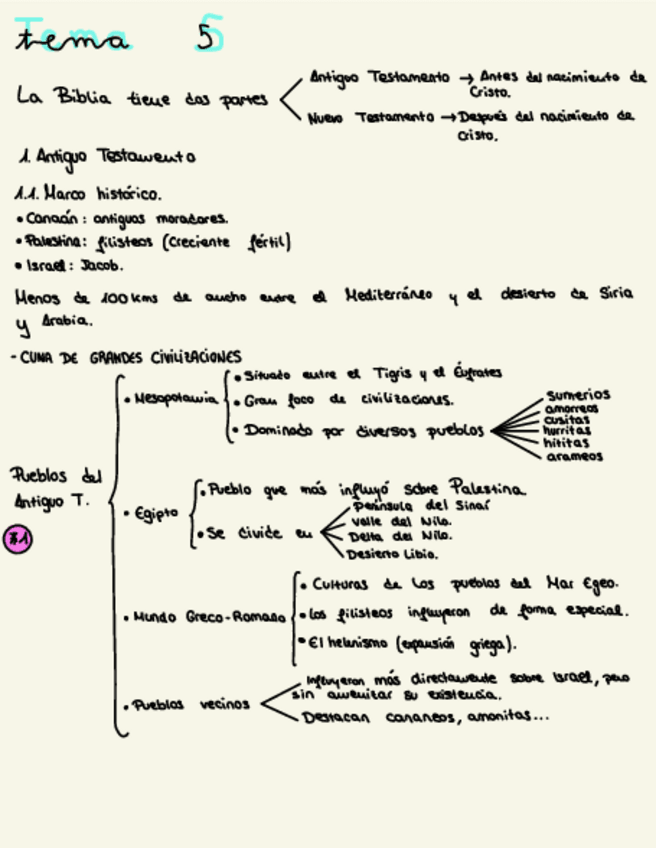 tema 5
La Biblia tiene dos partes
Antiguo Testamento → Antes del nacimiento de
Cristo.
Nuevo Testamento → Después del nacimiento de
Cristo.
1. Antiguo Testamento
1.1. Marco histórico.
• Canaán: antiguos moradores.
• Palestina: filisteos (Creciente fértil)
• Israel: Jacob.
Menos de 100 kms de ancho entre el Mediterráneo y el desierto de Siria
y Arabia.
- CUNA DE GRANDES CIVILIZACIONES
Pueblos del
Antiguo T.
• Mesopotamia
• Situado entre el Tigris y el Éufrates
• Gran foco de civilizaciones.
• Dominado por diversos pueblos
sumerios
amorreos
cusitas
hurritas
hititas
arameos
• Egipto
• Pueblo que más influyó sobre Palestina
• Se divide en
Península del Sinaí
Valle del Nilo.
Delta del Nilo.
Desierto Libio.
• Mundo Greco-Romano
• Culturas de los pueblos del Mar Egeo.
• los filisteos influyeron de forma especial.
• El helenismo (expansión griega).
• Pueblos vecinos
Influyeron más directamente sobre Israel, pero
sin
su existencia.
Destacan cananeos, amonitas...